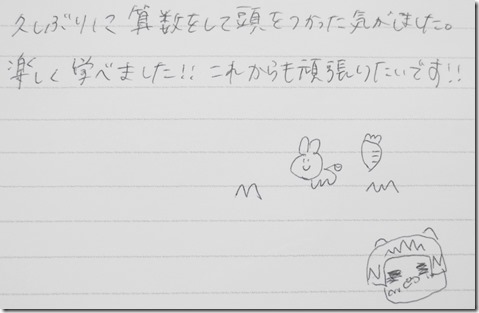 久しぶりに算数をして頭をつかった気がしました。
楽しく学べました!! これからも頑張りたいです!!